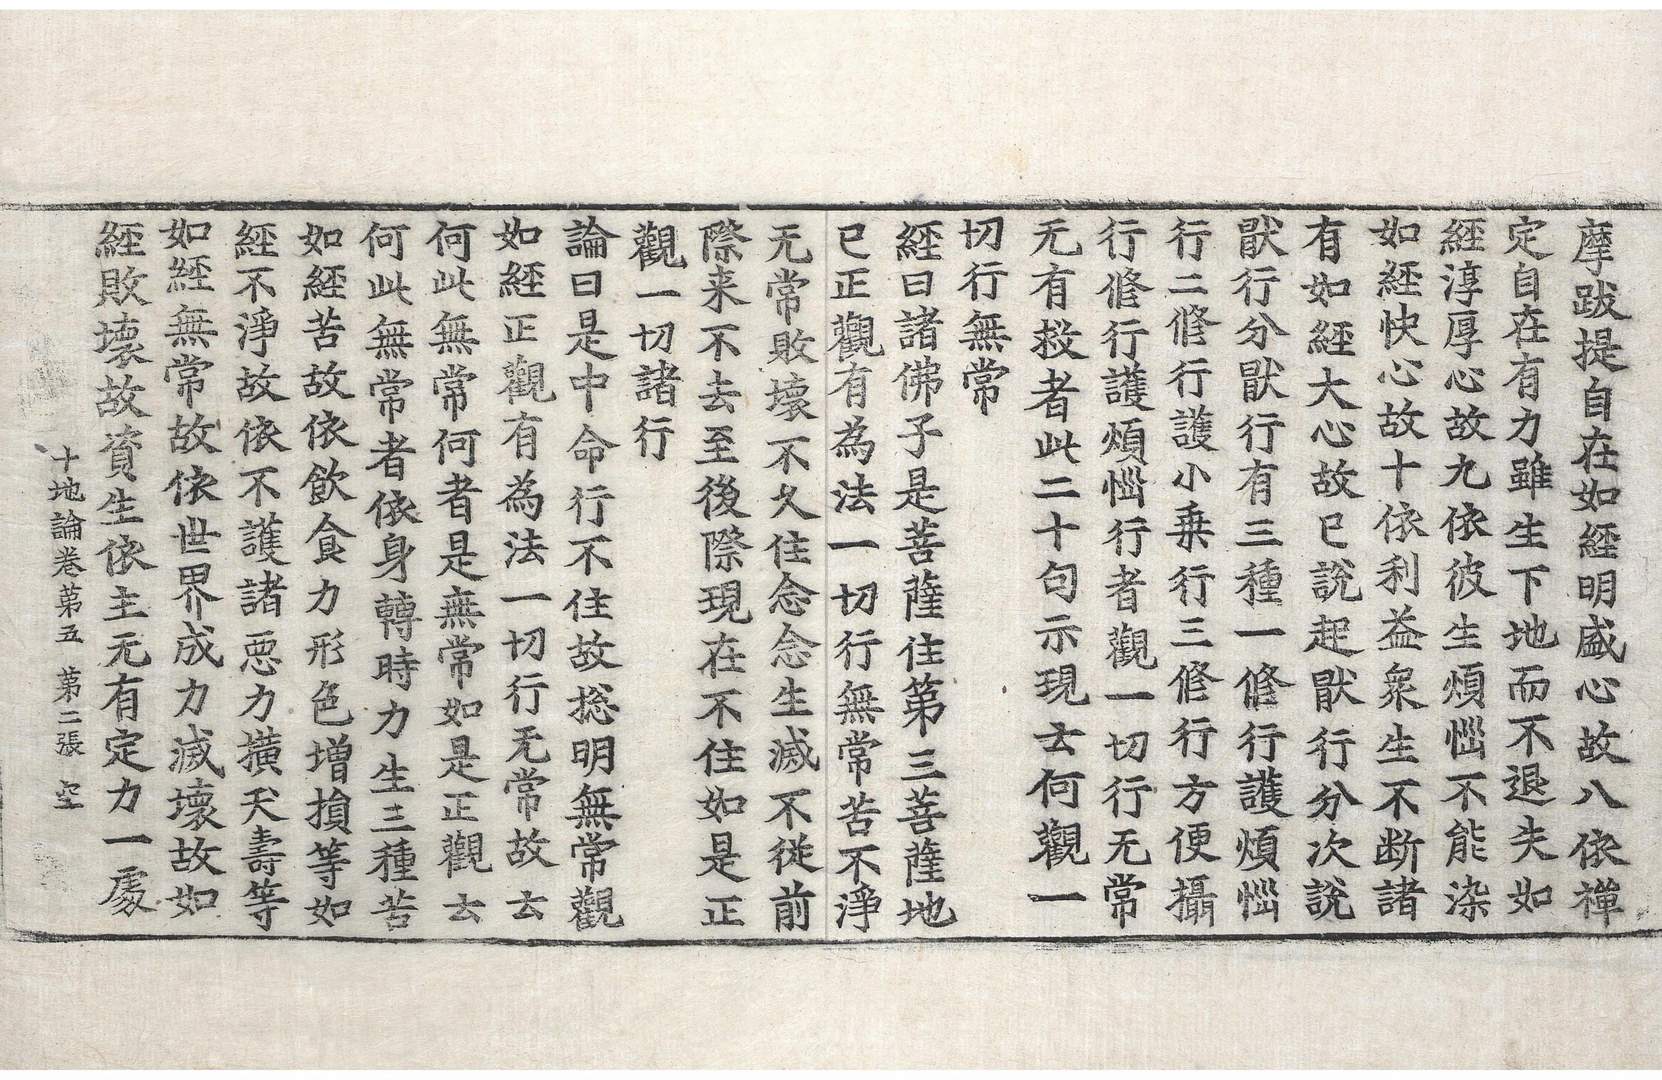 摩跋提自在如經明盛心故八依禪
定自在有力雖生下地而不退失如
經淳厚心故九依彼生煩惱不能染
如經快心故十依利益衆生不断諸
有如經大心故已說起猒行分次說
猒行分猒行有三種一修行護煩惱
行二修行護小乗行三修行方便攝
行修行護煩惱行者觀一切行无常
无有救者此二十句示現云何觀一
切行無常
經曰諸佛子是菩薩住第三菩薩地
已正觀有為法一切行無常苦不淨
无常敗壞不久住念念生滅不從前
際来不去至後際現在不住如是正
觀一切諸行
論曰是中命行不住故捴明無常觀
如經正觀有為法一切行无常故云
何此無常何者是無常如是正觀云
何此無常者依身轉時力生三種苦
如經苦故依飲食力形色增損等如
經不淨故依不護諸惡力撗夭壽等
如經無常故依世界成力滅壞故如
經敗壞故資生依主无有定力一處
十地論卷第五　第二張　空